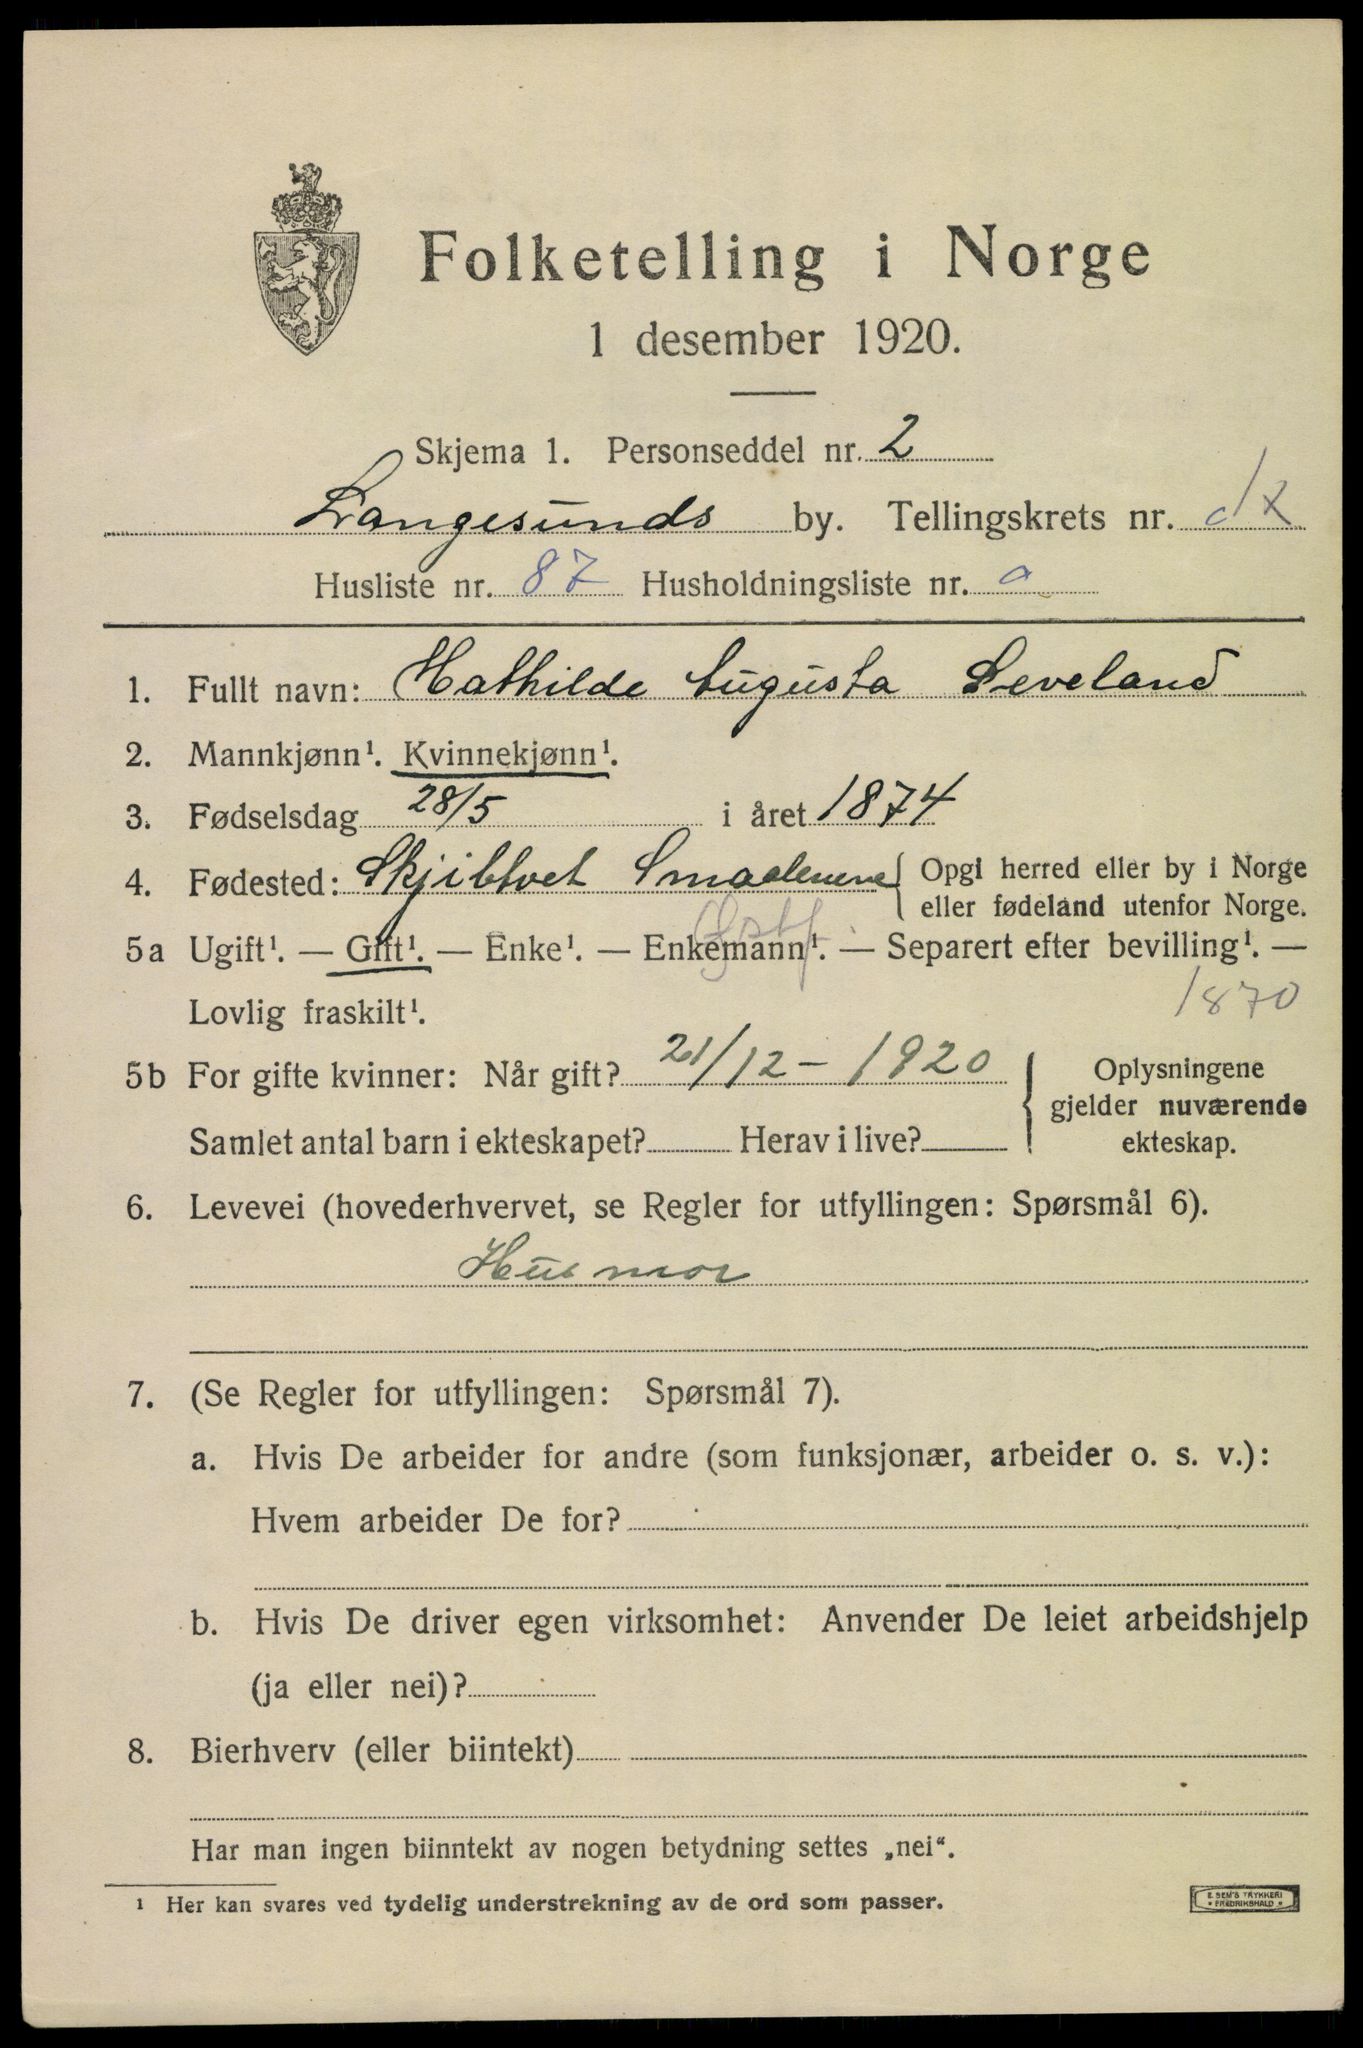 Folketelling i Norge
1 desember 1920.
Skjema 1. Personseddel nr. 2
Langesunds by. Tellingskrets nr.
Husliste nr. 87 Husholdningsliste nr. a
1. Fullt navn: Mathilde Augusta Leveland
2. Mannkjønn¹. Kvinnekjønn¹.
3. Fødselsdag 28/5 i året 1874
4. Fødested: Skjibtvet Smaalenene { Opgi herred eller by i Norge
eller fødeland utenfor Norge.
Østf.
5a Ugift¹. — Gift¹. — Enke¹. — Enkemann¹. — Separert efter bevilling¹. —
Lovlig fraskilt¹. 1870
5b For gifte kvinner: Når gift? 21/12 – 1920 { Oplysningene
gjelder nuværende
Samlet antal barn i ekteskapet? — Herav i live? — ekteskap.
6. Levevei (hovederhvervet, se Regler for utfyllingen: Spørsmål 6).
Husmor
7. (Se Regler for utfyllingen: Spørsmål 7).
a. Hvis De arbeider for andre (som funksjonær, arbeider o. s. v.):
Hvem arbeider De for?
b. Hvis De driver egen virksomhet: Anvender De leiet arbeidshjelp
(ja eller nei)?
8. Bierhverv (eller biintekt)
Har man ingen biinntekt av nogen betydning settes „nei“.
¹ Her kan svares ved tydelig understrekning av de ord som passer.
E. SEM'S TRYKKERI
• FREDRIKSHALD •